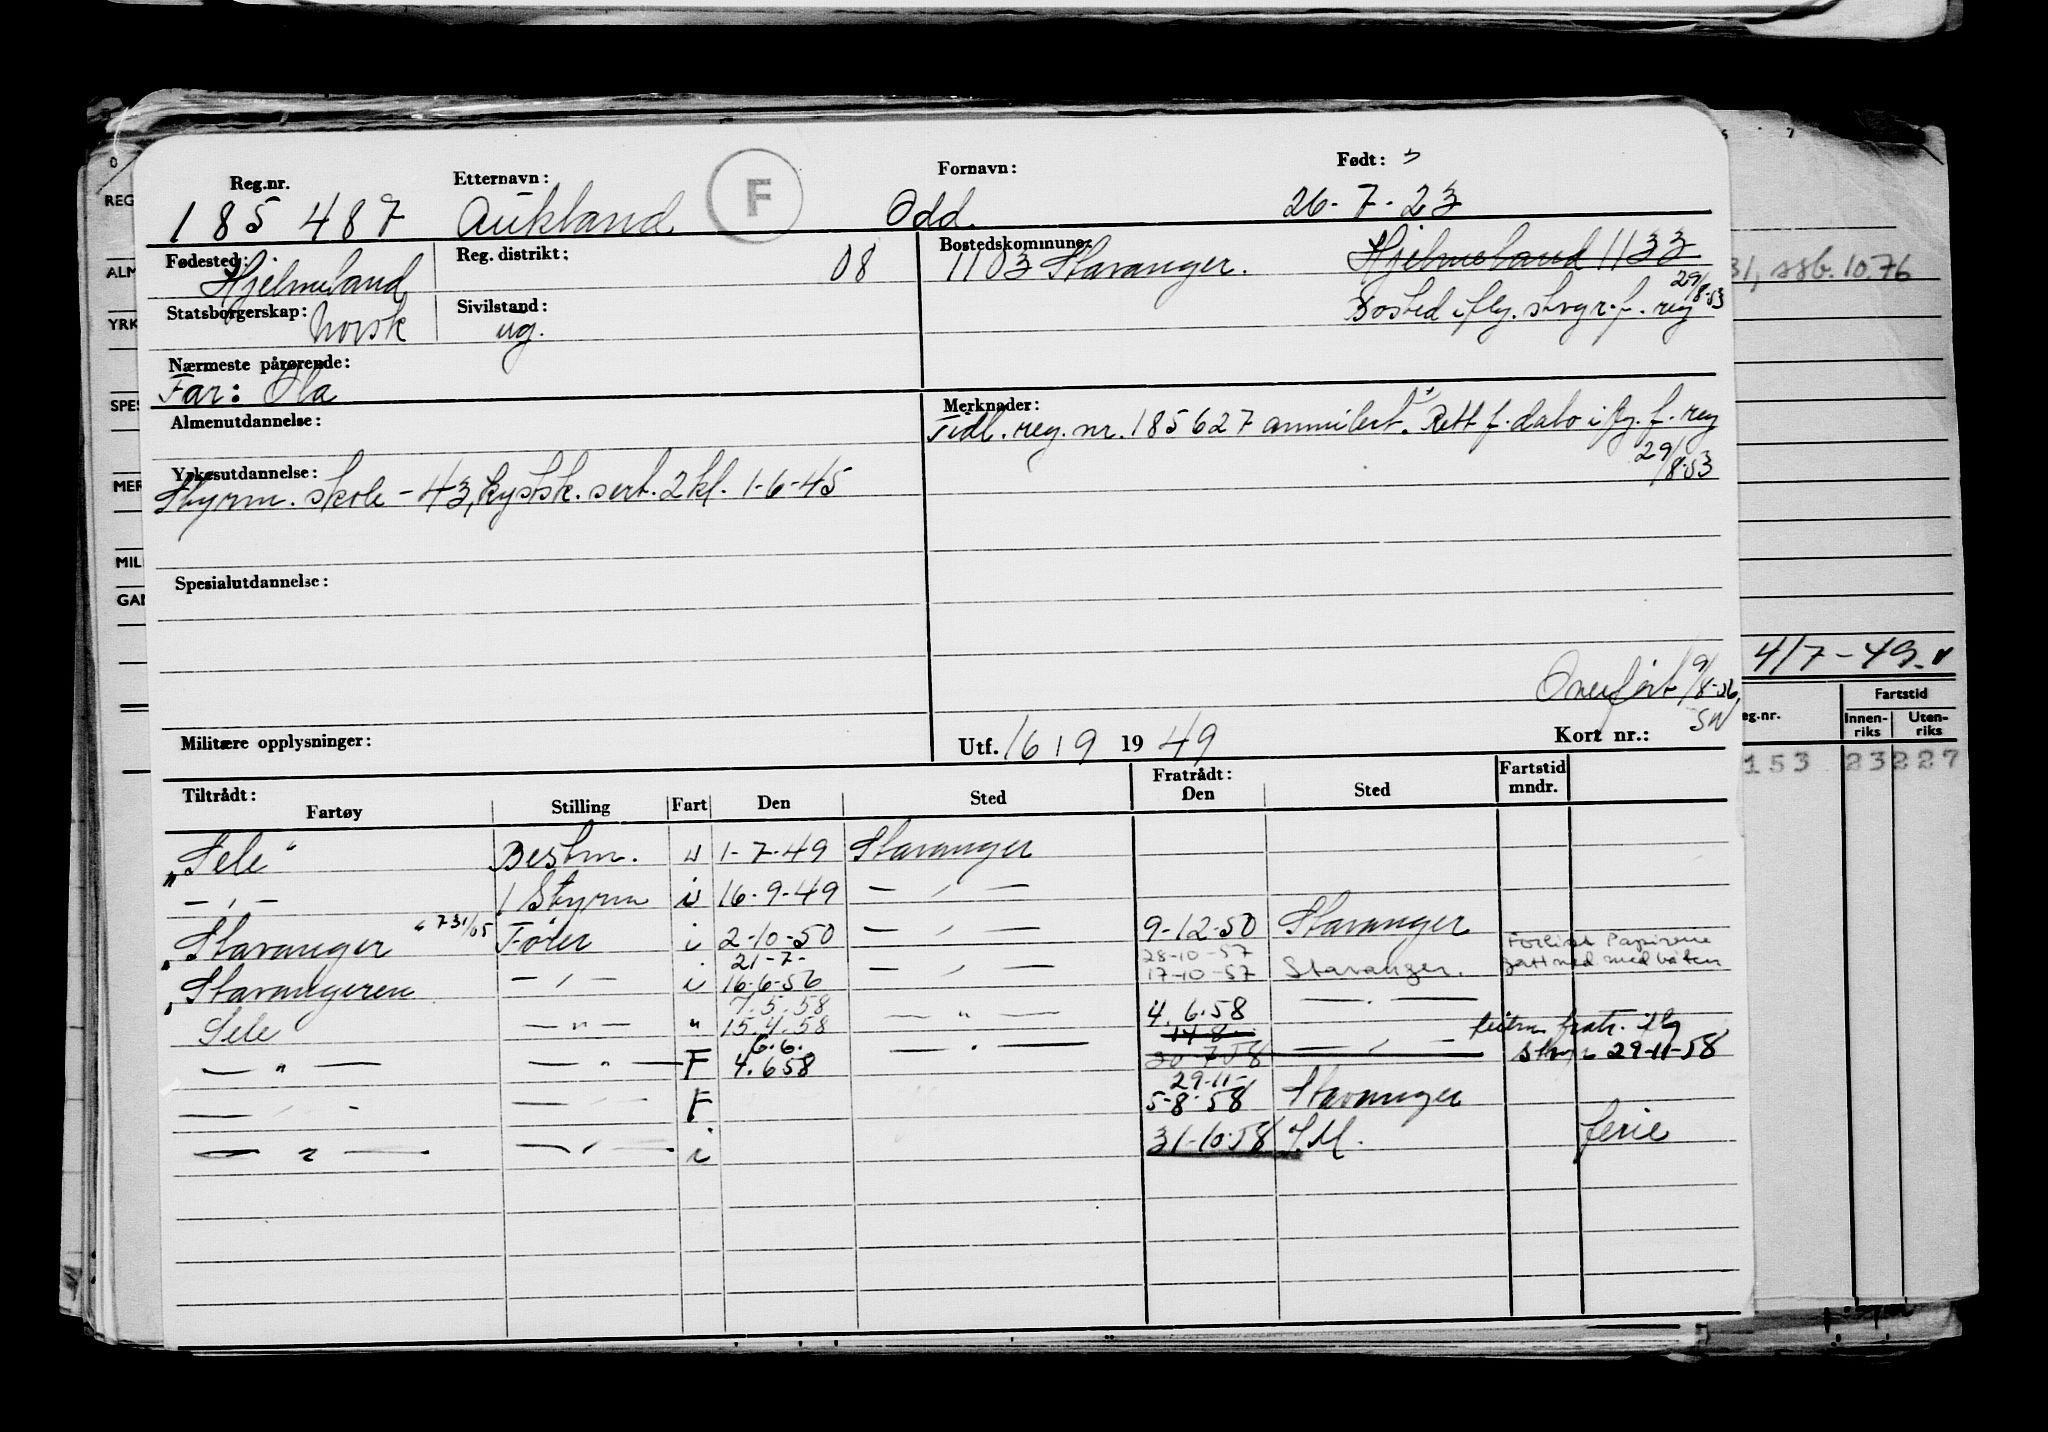 Reg.nr. Etternavn: F Fornavn: Født:
185 487 Aukland Odd. 26-7-23
Fødested: Hjelmeland Reg. distrikt: 08 Bostedskommune: 1103 Stavanger. Hjelmeland 1133
29/8-53
Statsborgerskap: Norsk Sivilstand: ug. Bosted iflg. stvgr. f. reg
Nærmeste pårørende:
Far: Ola
Almenutdannelse:
Merknader:
Tidl. reg. nr. 185627 annulert. Rett f. dato iflg. f. reg
29/8-53
Yrkesutdannelse:
Styrm. skole - 43, kystsk. sert. 2 kl. 1-6-45
Spesialutdannelse:
Overført 9/8-56
SW
Militære opplysninger: Utf. 16 / 9 19 49 Kort nr.:
Tiltrådt: Fratrådt: Fartstid
Fartøy Stilling Fart Den Sted Den Sted mndr.
"Sele" Bestm. 1-7-49 Stavanger
- " - 1 Styrm i 16-9-49 - " -
"Stavanger" 731/05 Fører i 2-10-50 - " - 9-12-50 Stavanger
21-7- 28-10-57 Forlist Papirene
"Stavangeren - " - i 16-6-56 - " - 17-10-57 Stavanger. gått ned med båten
7.5.58
Sele - " - " 15.4.58 - " - 4.6.58 - " - fratr.
6.6. 14-8-
- " - - " - F 4.6 58 - " - 30-7-58 - " - 29-11-58
29-11-
- " - - " - F 5-8-58 Stavanger
- " - - " - i 31-10-58 ferie
0
REG
ALM
YRK
SPES
MER
MIL
GAN
7
31, 10.76
4/7-49.
eg.nr. Fartstid
Innen-riks Uten-riks
153 23 227